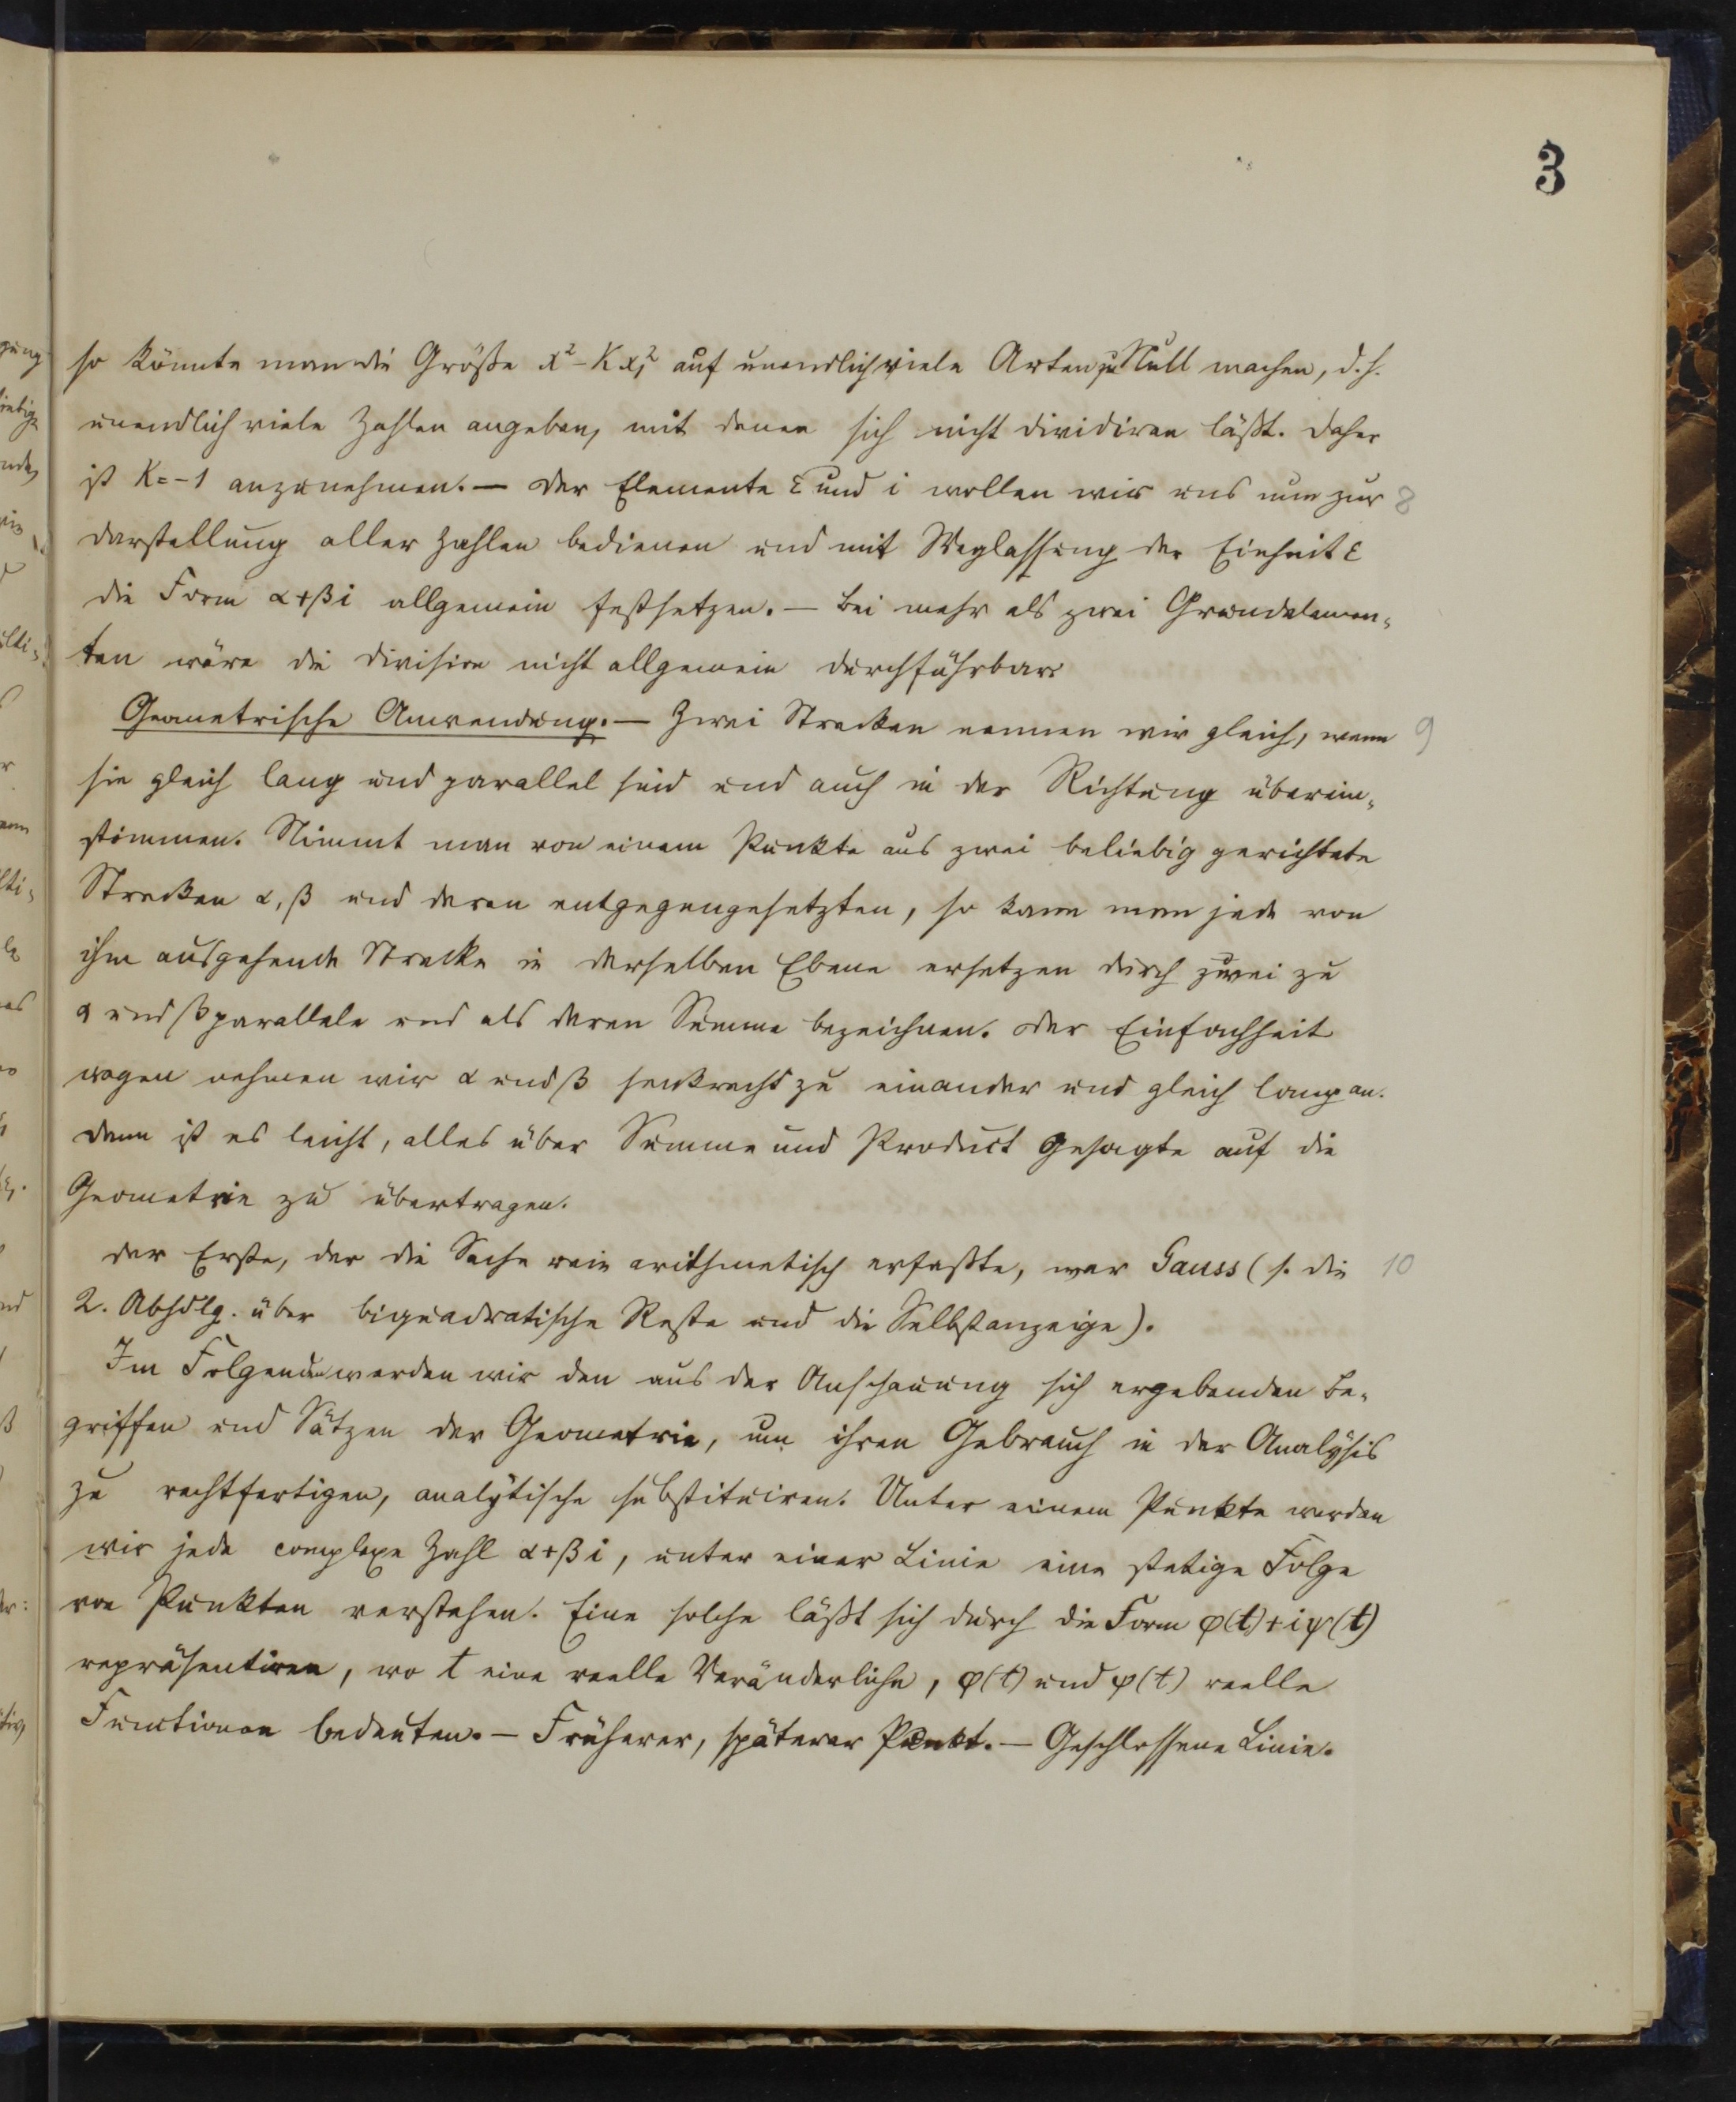 3
so könnte man die Größe x² - K x₁² auf unendlich viele Arten zu Null machen, d. h.
unendlich viele Zahlen angeben, mit denen sich nicht dividiren läßt. Daher
ist K = -1 anzunehmen. — Der Elemente ε und i wollen wir uns nun zur 8
Darstellung aller Zahlen bedienen und mit Weglassung der Einheit ε
die Form α+βi allgemein festsetzen. — Bei mehr als zwei Grundelemen-
ten wäre die Division nicht allgemein durchführbar.
Geometrische Anwendung. — Zwei Strecken nennen wir gleich, wenn 9
sie gleich lang und parallel sind und auch in der Richtung überein-
stimmen. Nimmt man von einem Punkte aus zwei beliebig gerichtete
Strecken α, β und deren entgegengesetzten, so kann man jede von
ihm ausgehende Strecke in derselben Ebene ersetzen durch zwei zu
α und β parallele und als deren Summe bezeichnen. Der Einfachheit
wegen nehmen wir α und β senkrecht zu einander und gleich lang an.
Dann ist es leicht, alles über Summe und Product Gesagte auf die
Geometrie zu übertragen.
Der Erste, der die Sache rein arithmetisch erfaßte, war Gauss (s. die 10
2. Abhdlg. über biquadratische Reste und die Selbstanzeige).
Im Folgenden werden wir den aus der Anschauung sich ergebenden Be-
griffen und Sätzen der Geometrie, um ihren Gebrauch in der Analysis
zu rechtfertigen, analytische substituiren. Unter einem Punkte werden
wir jede complexe Zahl α+βi, unter einer Linie eine stetige Folge
von Punkten verstehen. Eine solche läßt sich durch die Form φ(t)+iψ(t)
repräsentiren, wo t eine reelle Veränderliche, φ(t) und ψ(t) reelle
Functionen bedeuten. — Früherer, späterer Punkt. — Geschlossene Linie.